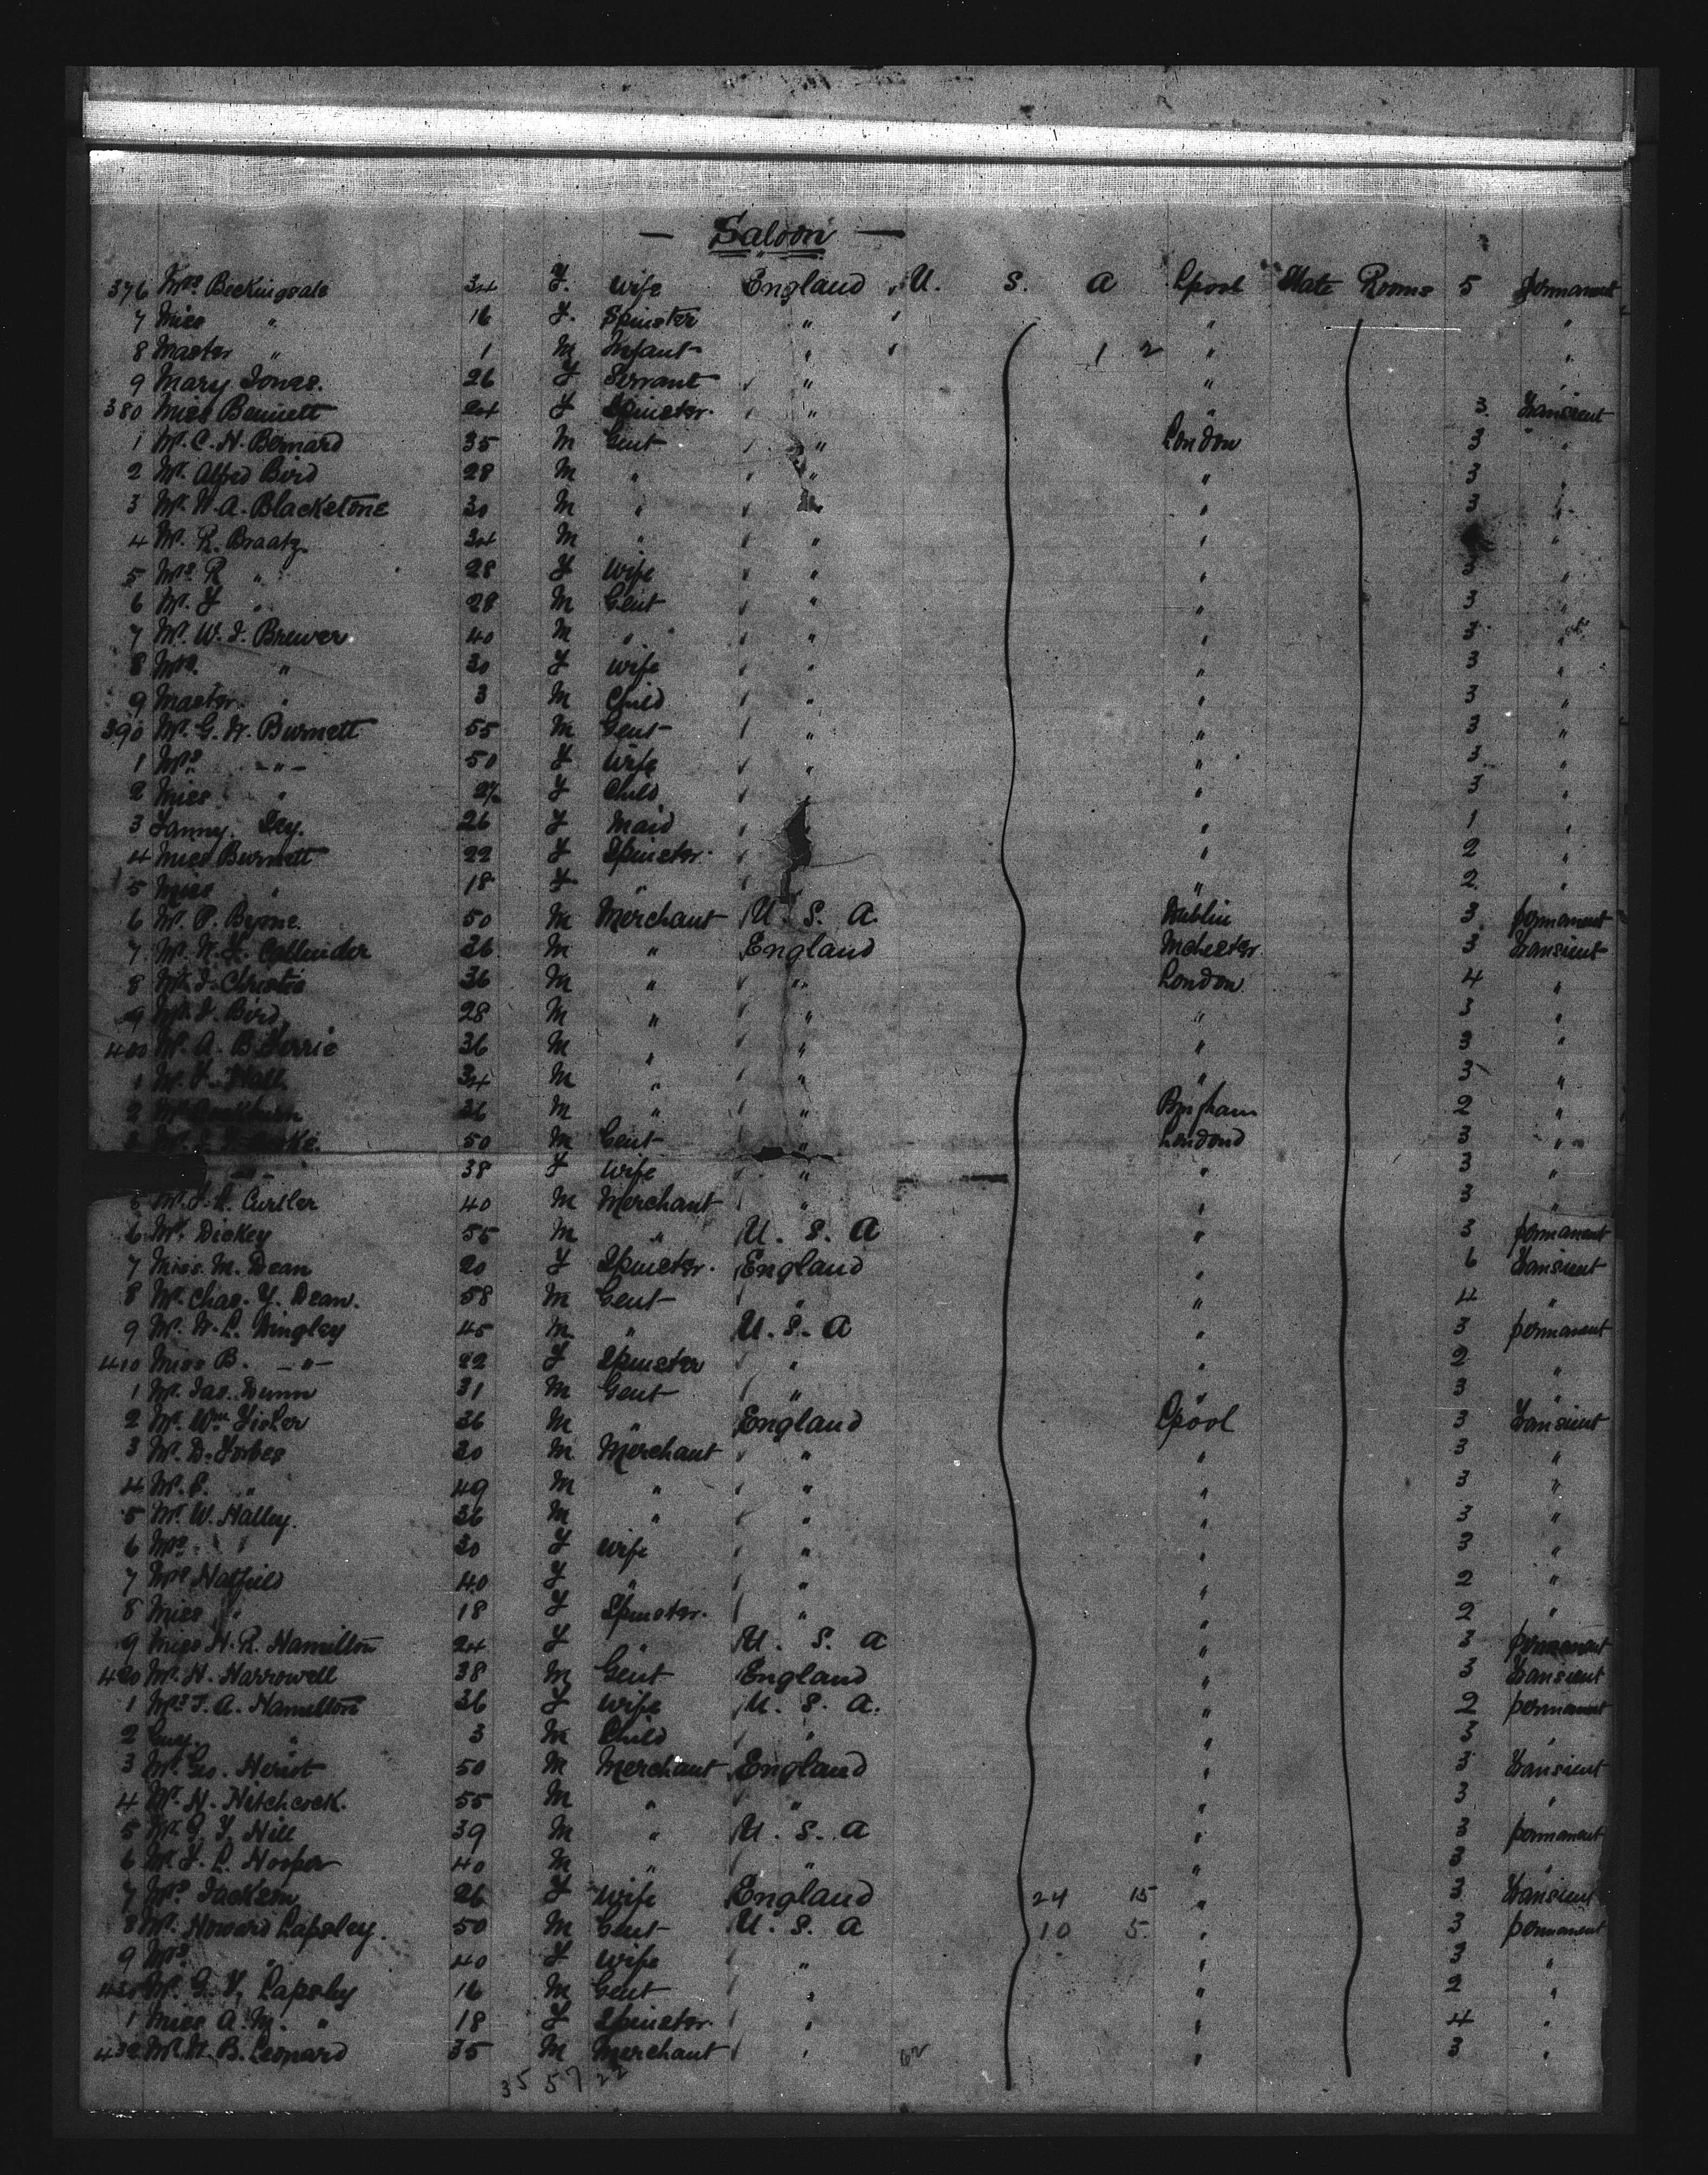 — Saloon —
376 Mrs Beckingsale 34 F. Wife England U. S. A Lpool State Rooms 5 permanent
7 Miss " 16 F. Spinster " " "
8 Master " 1 M Infant " 1 2 " "
9 Mary Jones. 26 F Servant " " "
380 Miss Bennett 24 F Spinster. " " 3. transient
1 Mr. C. H. Bernard 35 M Gent " London 3 "
2 Mr. Alfred Bird 28 M " " " 3 "
3 Mr. H. A. Blackstone 30 M " " " 3 "
4 Mr. R. Braatz. 34 M " " " "
5 Mrs R " 28 F Wife " " 3 "
6 Mr. F " 28 M Gent " " 3 "
7 Mr. W. J. Brewer 40 M " " " 3 "
8 Mrs. " 30 F Wife " " 3 "
9 Master " 3 M Child " " 3 "
390 Mr. G. H. Burnett 55 M Gent " " 3 "
1 Mrs. -"- 50 F Wife " " 3 "
2 Miss " F Child " " 3 "
3 Fanny. 26 F Maid " 1 "
4 Miss Burnett 22 F Spinster. " 2 "
5 Miss " 18 F " " 2 "
6 Mr. P. Byrne. 50 M Merchant U. S. A. Dublin 3 permanent
7 Mr. Callender 36 M " England Mchester. 3 transient
8 Mr. J. Christie 36 M " " London 4 "
9 Mr. J. Bird 28 M " " " 3 "
400 Mr. A. B. Ferrie 36 M " " " 3 "
1 Mr. F. Hall 34 M " " " 3 "
2 36 M " " 2 "
50 M Gent " 3 "
-"- 38 F Wife " " 3 "
5 Curtler 40 M Merchant " " 3 "
6 Mr. Dickey 55 M " U. S. A " 3 permanent
7 Miss. M. Dean 20 F Spinster. England " 6 transient
8 Mr. Chas. Y. Dean. 58 M Gent " " 4 "
9 Mr. Dingley 45 M. " U. S. A " 3 permanent
410 Miss B. -"- 22 F Spinster " " 2 "
1 Mr. Jas. Dunn 31 M Gent " " 3 "
2 Mr. Wm Fisher 36 M " England Lpool 3 transient
3 Mr. D. Forbes 30 M. Merchant " " 3 "
4 Mr. S. " 49 M " " " 3 "
5 Mr. W. Halley. 36 M " " " 3 "
6 Mrs. " 30 F Wife " " 3 "
7 Mrs Hatfield 40 F " " " 2 "
8 Miss " 18 F Spinster. " " 2 "
9 Miss H. R. Hamilton 24 F " U. S. A " 3 permanent
420 Mr. H. Harrowell 38 M Gent England " 3 transient
1 Mrs J. A. Hamilton 36 F Wife U. S. A. " 2 permanent
2 Guy. " 3 M Child " " 3 "
3 Mr. Geo. Heriot 50 M Merchant England " 3 transient
4 Mr. H. Hitchcock. 55 M " " " 3 "
5 Mr. Hill 39 M " U. S. A " 3 permanent
6 Mr. F. L. Hooper 40 M " " " 3 "
7 Mrs. Jackson 26 F Wife England 24 15 " 3 transient
8 Mr. Howard Lapsley. 50 M Gent U. S. A 10 5 " 3 permanent
9 Mrs. " 40 F Wife " 3 "
430 Mr. G. Lapsley 16 M Gent " " 2 "
1 Miss A. M. " 18 F Spinster. " " 4 "
432 Mr. H. B. Leonard 35 M Merchant " 62 " 3 "
35 57 22